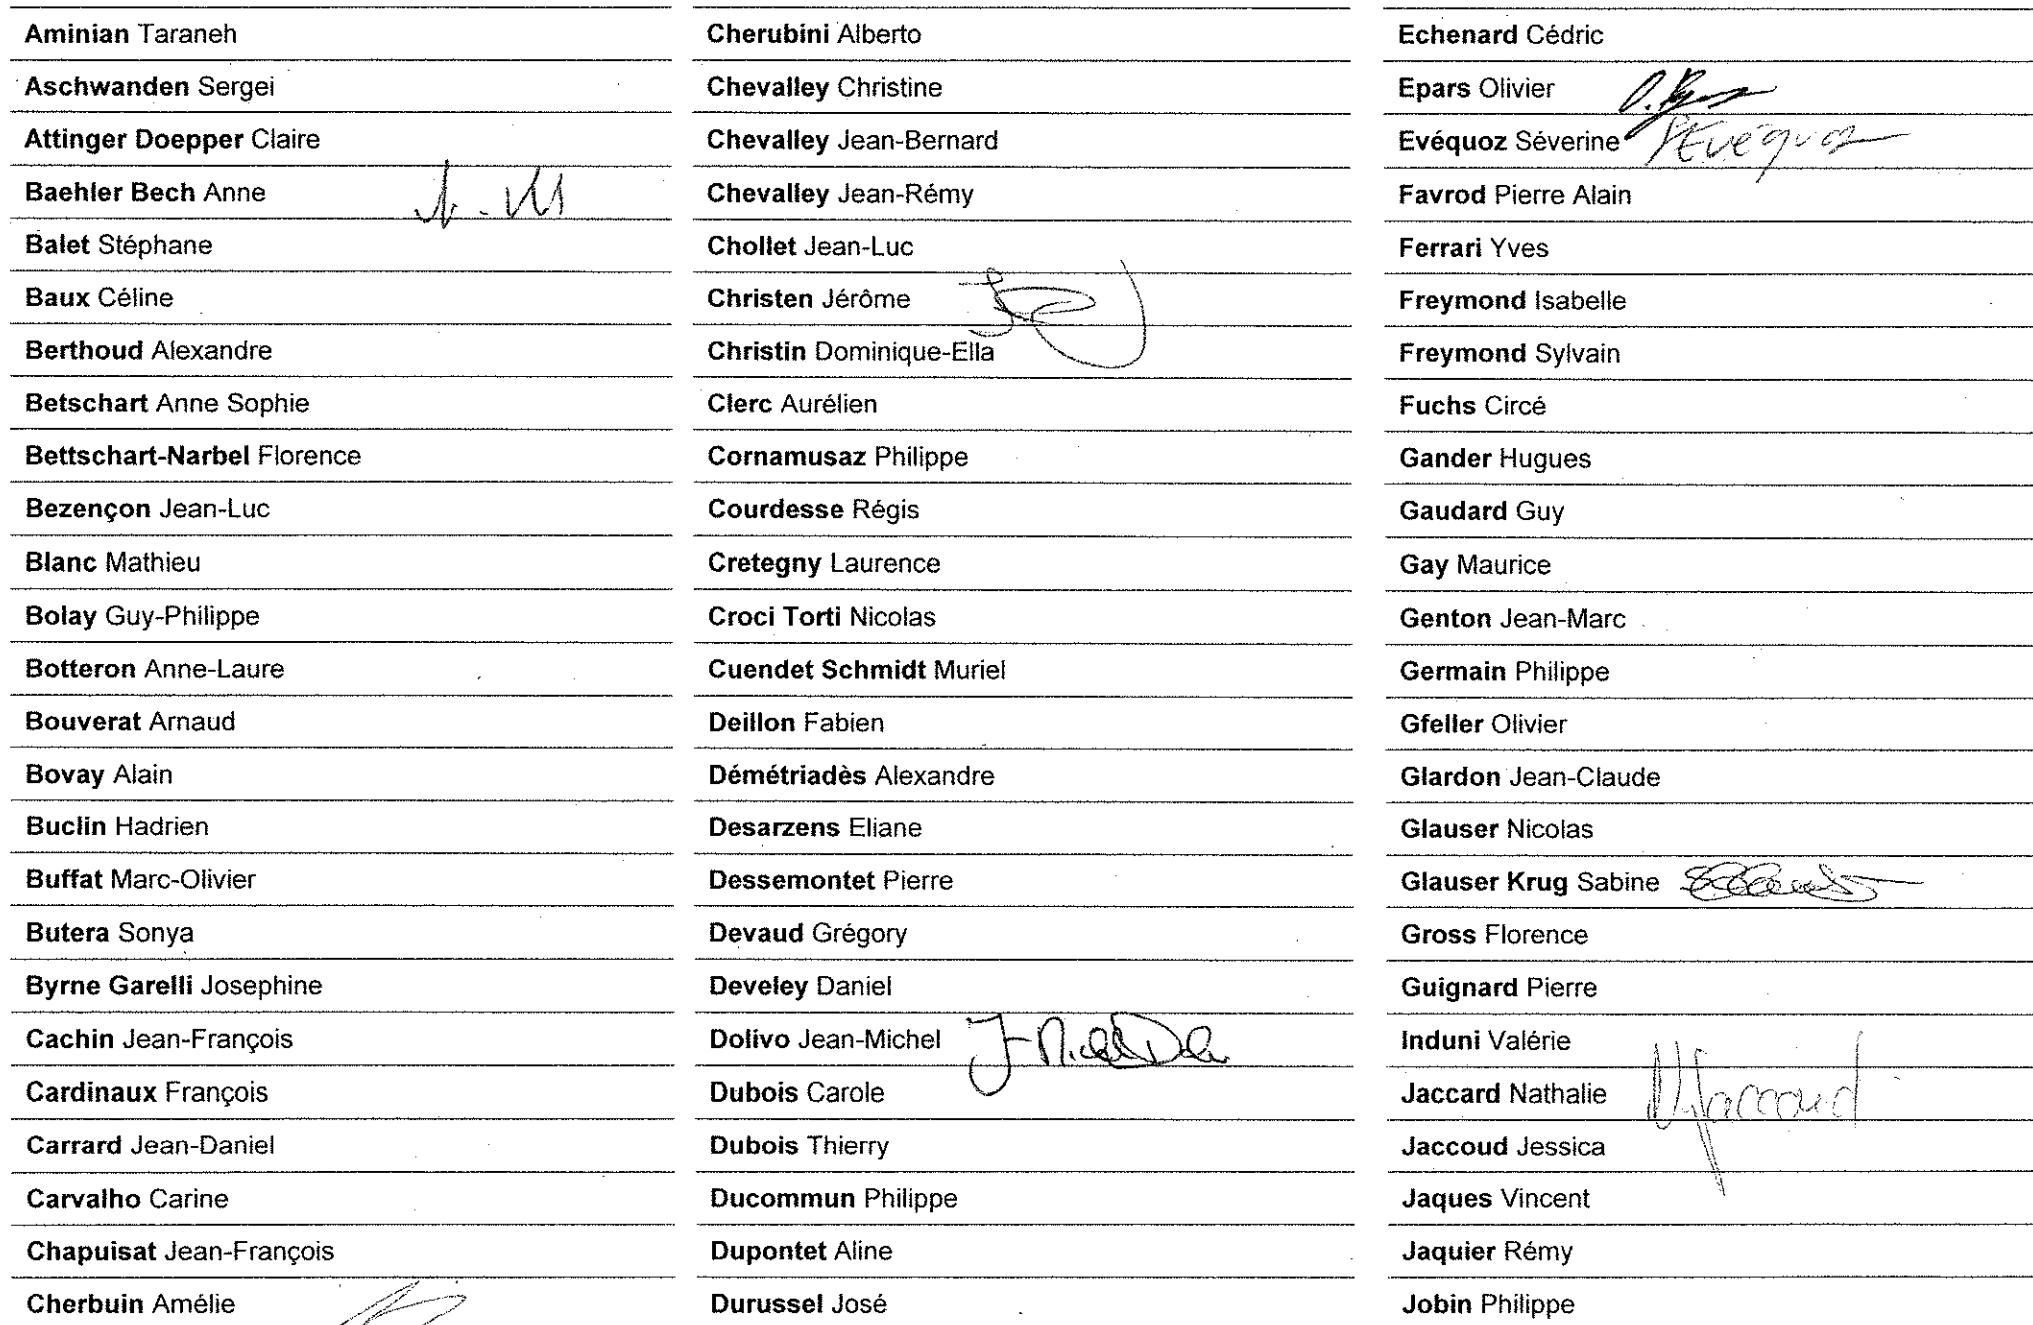 Aminian Taraneh
Aschwanden Sergei
Attinger Doepper Claire
Baehler Bech Anne
Balet Stéphane
Baux Céline
Berthoud Alexandre
Betschart Anne Sophie
Bettschart-Narbel Florence
Bezençon Jean-Luc
Blanc Mathieu
Bolay Guy-Philippe
Botteron Anne-Laure
Bouverat Arnaud
Bovay Alain
Buclin Hadrien
Buffat Marc-Olivier
Butera Sonya
Byrne Garelli Josephine
Cachin Jean-François
Cardinaux François
Carrard Jean-Daniel
Carvalho Carine
Chapuisat Jean-François
Cherbuin Amélie
Cherubini Alberto
Chevalley Christine
Chevalley Jean-Bernard
Chevalley Jean-Rémy
Chollet Jean-Luc
Christen Jérôme
Christin Dominique-Ella
Clerc Aurélien
Cornamusaz Philippe
Courdesse Régis
Cretegny Laurence
Croci Torti Nicolas
Cuendet Schmidt Muriel
Deillon Fabien
Démétriadès Alexandre
Desarzens Eliane
Dessemontet Pierre
Devaud Grégory
Develey Daniel
Dolivo Jean-Michel
Dubois Carole
Dubois Thierry
Ducommun Philippe
Dupontet Aline
Durussel José
Echenard Cédric
Epars Olivier
Evéquoz Séverine SEvéquoz
Favrod Pierre Alain
Ferrari Yves
Freymond Isabelle
Freymond Sylvain
Fuchs Circé
Gander Hugues
Gaudard Guy
Gay Maurice
Genton Jean-Marc
Germain Philippe
Gfeller Olivier
Glardon Jean-Claude
Glauser Nicolas
Glauser Krug Sabine
Gross Florence
Guignard Pierre
Induni Valérie
Jaccard Nathalie NJaccard
Jaccoud Jessica
Jaques Vincent
Jaquier Rémy
Jobin Philippe